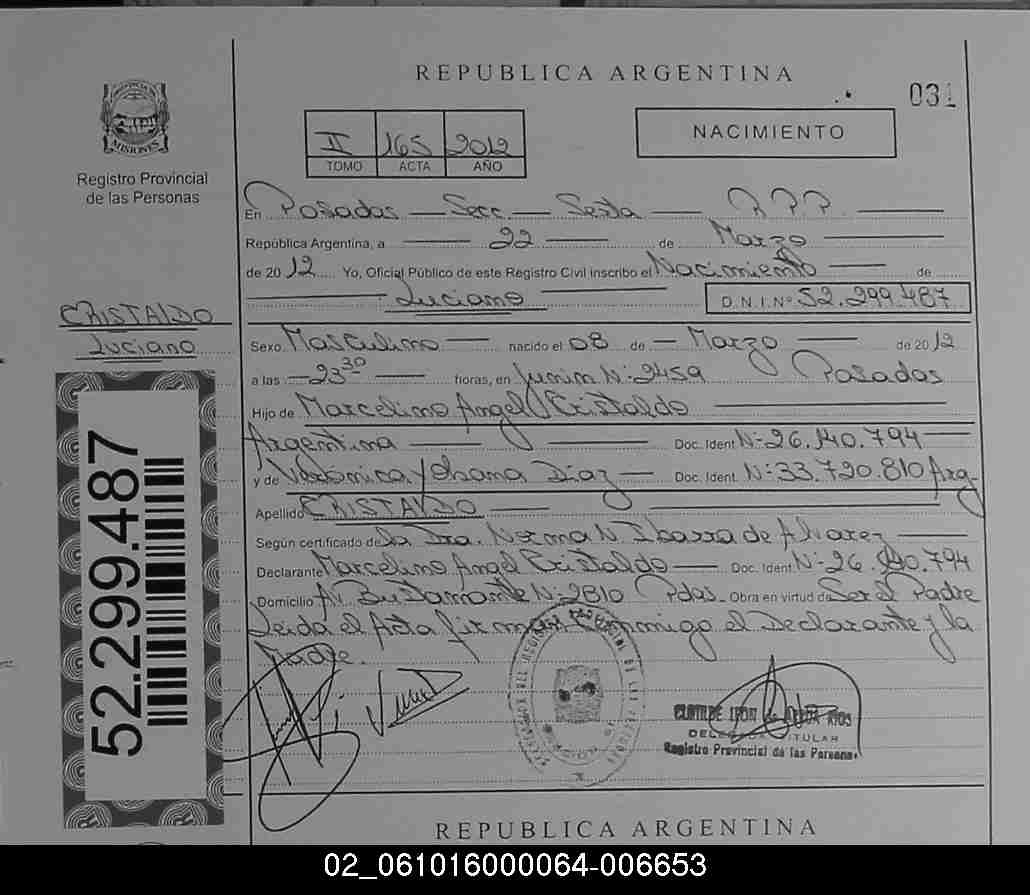 REPUBLICA ARGENTINA
031
II 165 2012
TOMO ACTA AÑO
NACIMIENTO
MISIONES
Registro Provincial
de las Personas
En Posadas — Secc. — Sexta — R.P.P. —
República Argentina, a — 22 — de Marzo —
de 2012. Yo, Oficial Público de este Registro Civil inscribo el Nacimiento — de
— Luciano — D.N.I. Nº 52.299.487
CRISTALDO
Luciano
Sexo Masculino — nacido el 08 de — Marzo — de 2012
a las — 23 30 — horas, en Junin N: 2459 Posadas
Hijo de Marcelino Angel Cristaldo —
Argentina — — Doc. Ident. N: 26.140.794 —
y de Verónica Yohana Díaz — Doc. Ident. N: 33.720.810 Arg.
Apellido CRISTALDO —
Según certificado de la Dra. Norma N. Ibarra de Alvarez —
Declarante Marcelino Angel Cristaldo — Doc. Ident. N: 26.140.794
Domicilio Av. Bustamante N: 2810 Pdas. Obra en virtud de Ser el Padre
Leida el Acta firman conmigo el Declarante y la
Madre.
52.299.487
DELEGADA TITULAR
Registro Provincial de las Personas
REPUBLICA ARGENTINA
02_061016000064-006653